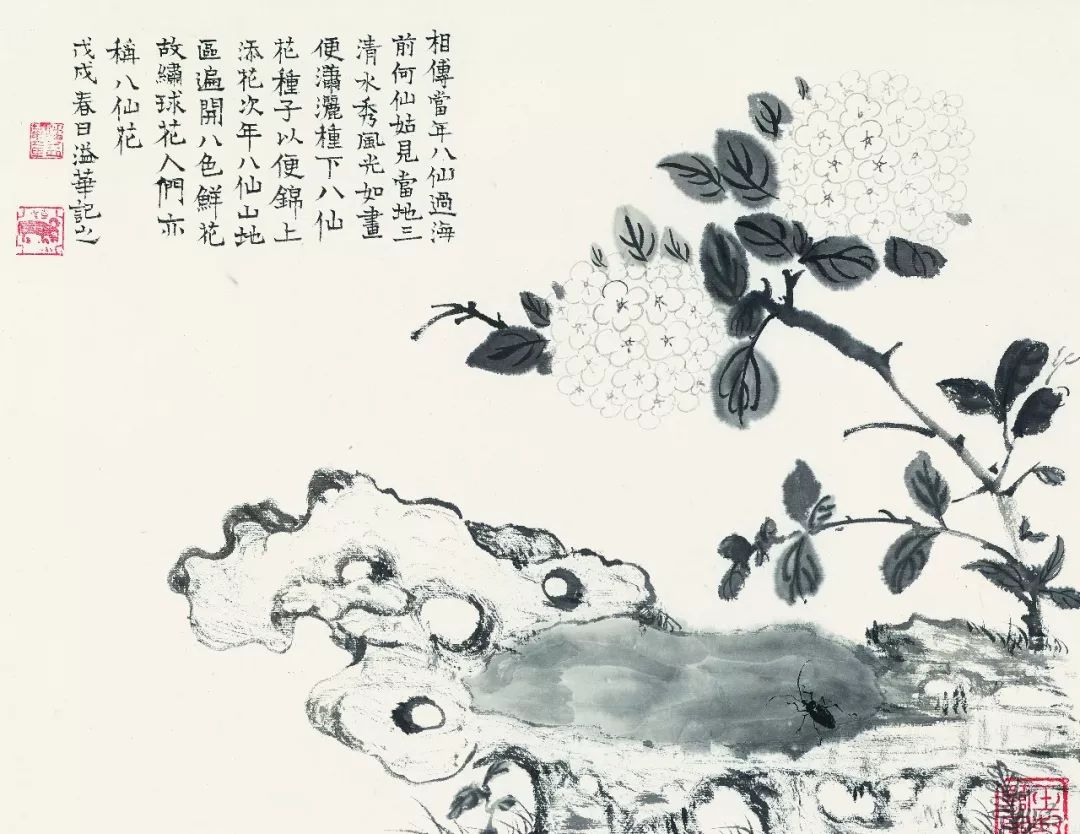 相傳當年八仙過海
前何仙姑見當地三
清水秀風光如畫
便瀟灑種下八仙
花種子以便錦上
添花次年八仙山地
區遍開八色鮮花
故繡球花人們亦
稱八仙花
戊戌春日溢華記之